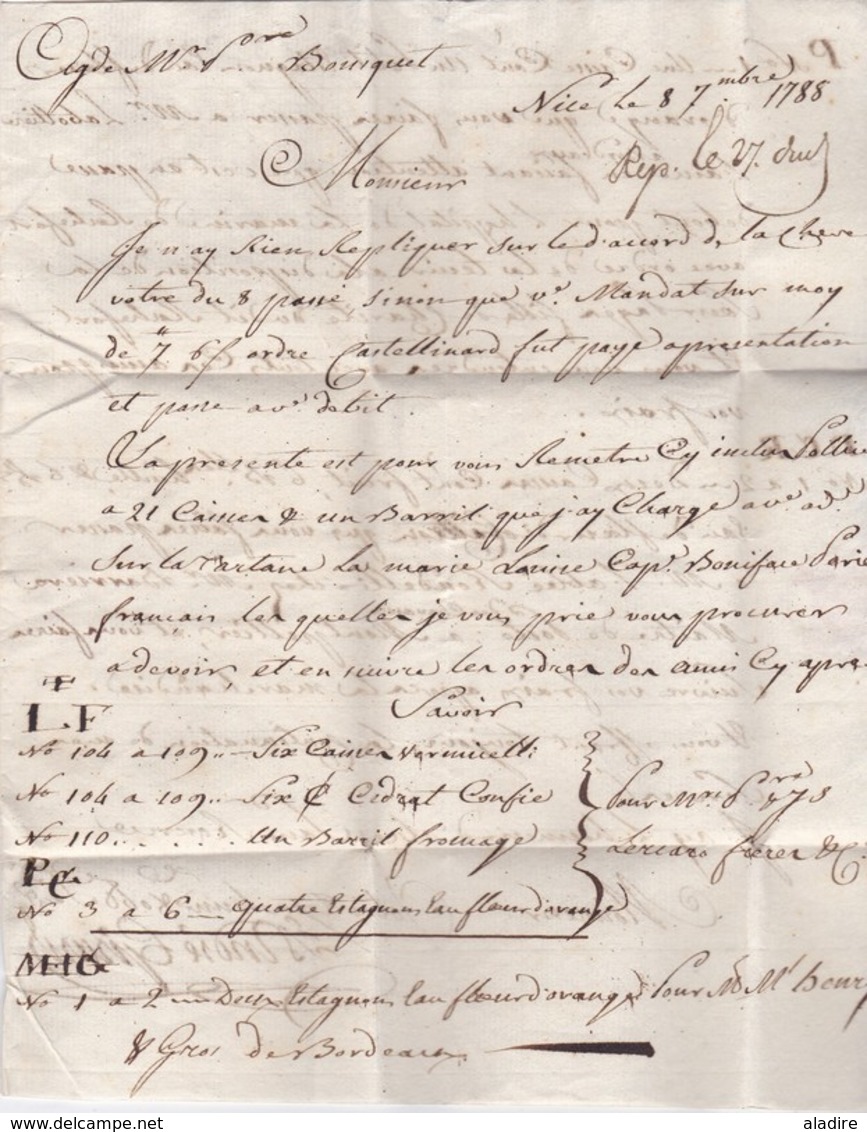 Agde Mr. Pre Bousquet
Nice Le 8 7.mbre 1788
Monsieur
Rep. le 27. dud
Je n'ay Rien Repliquer sur le d'accord de la Chere
votre du 8 passé, sinon que v.e Mandat sur moy
de " 7 6 ordre Castellinard fut payé a presentation
et passe a v.e debit.
La presente est pour vous Remetre Cy inclus Pollice
a 21 Caisses & un Barril que j'ay Chargé a v.e ad.e
Sur la Tartane La marie Louise Cap.e Boniface
francais les quelles je vous prie vous procurer
a devoir, et en suivre les ordres des amis Cy apres
Savoir
LF
No 104 a 109 .. Six Caisses vermicelli
No 104 a 109 .. Six C Cedrat Confie
Pour Mrs. P.re & J
No 110 . . . . . . . Un Barril fromage
Lercaro freres & C.
P
No 3 a 6 — quatre Estagnons Eau fleur d'orange
No 1 a 2 — Deux Estagnons Eau fleur d'orange Pour M. Ml. henry
& Gros de Bordeaux
aladire